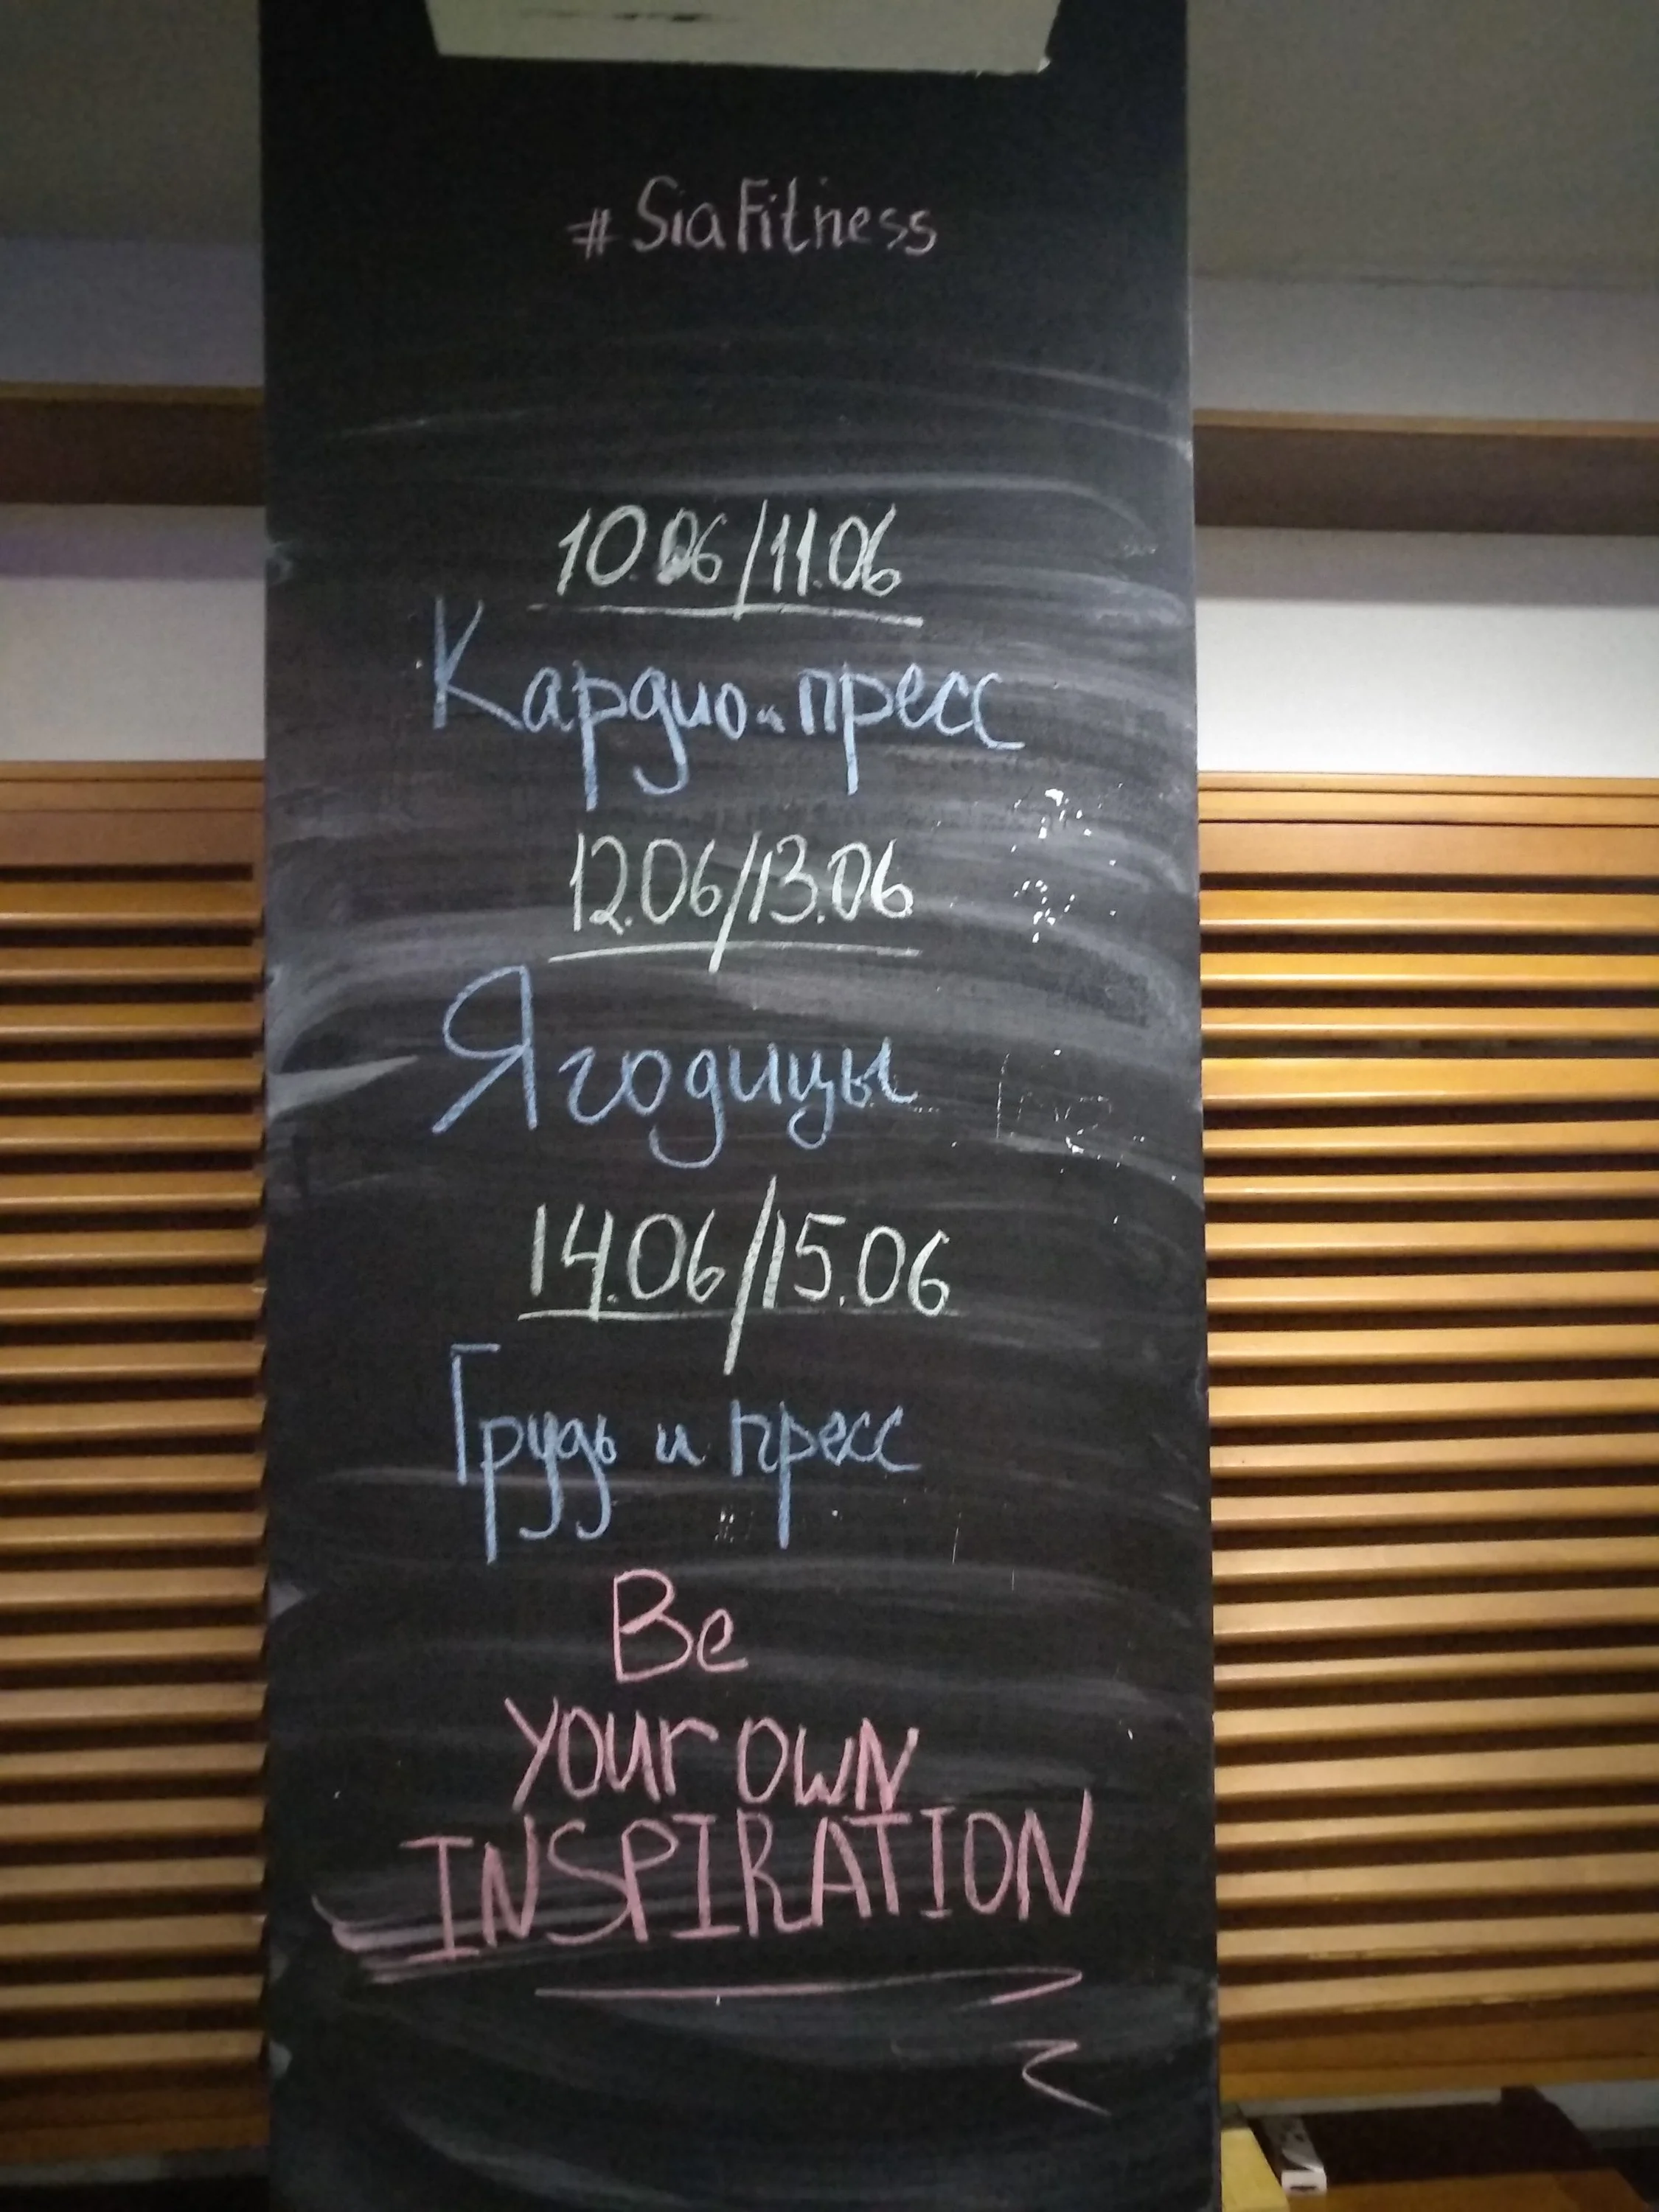 #SiaFitness
10.06/11.06
Кардио и пресс
12.06/13.06
Ягодицы
14.06/15.06
Грудь и пресс
Be
your own
INSPIRATION